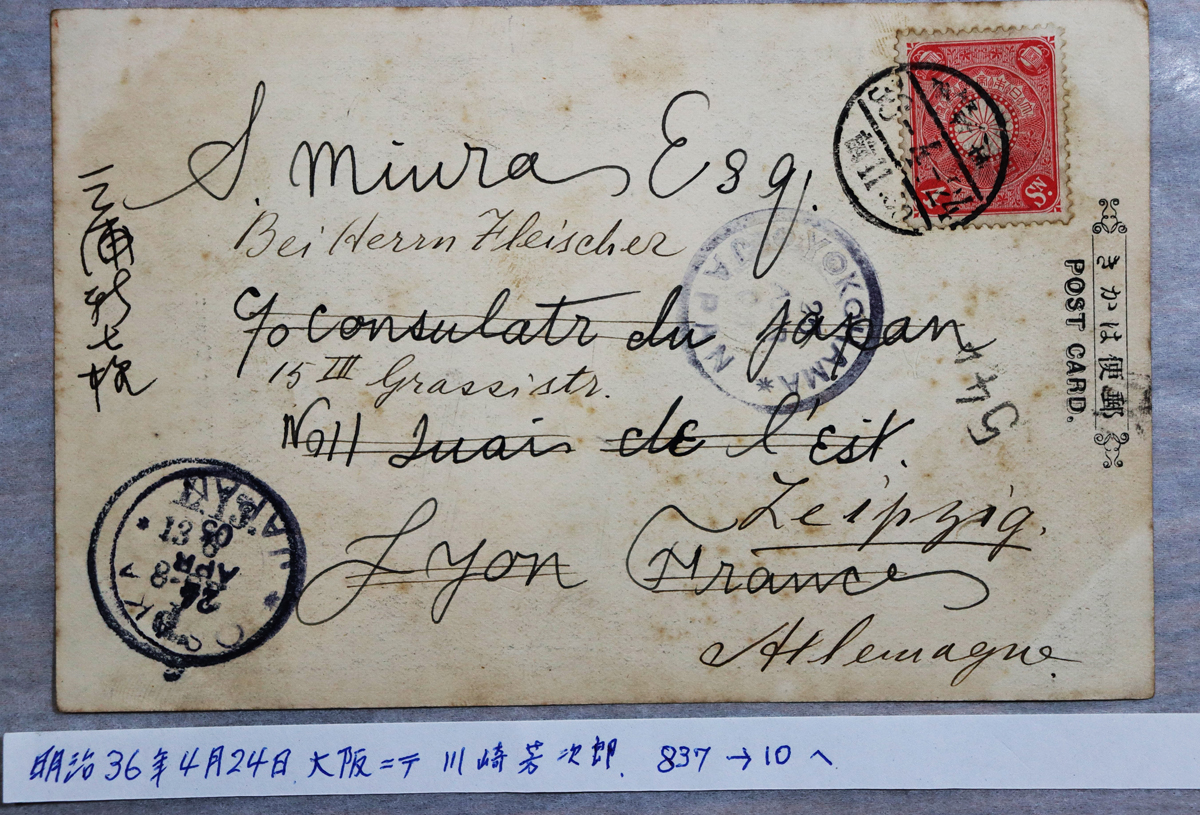 S. Miura Esq.
Bei Herrn Fleischer
c/o Consulatr du Japan
15 III Grassistr.
No 11 Quai de l'Est.
Leipzig.
Lyon France
Allemagne
三浦新七様
きかは便郵
POST CARD.
4 Sn.
YOKOHAMA
JAPAN
544
OSAKA
JAPAN
24 APR 03
明治36年4月24日 大阪ニテ 川崎芳次郎. 837→10へ